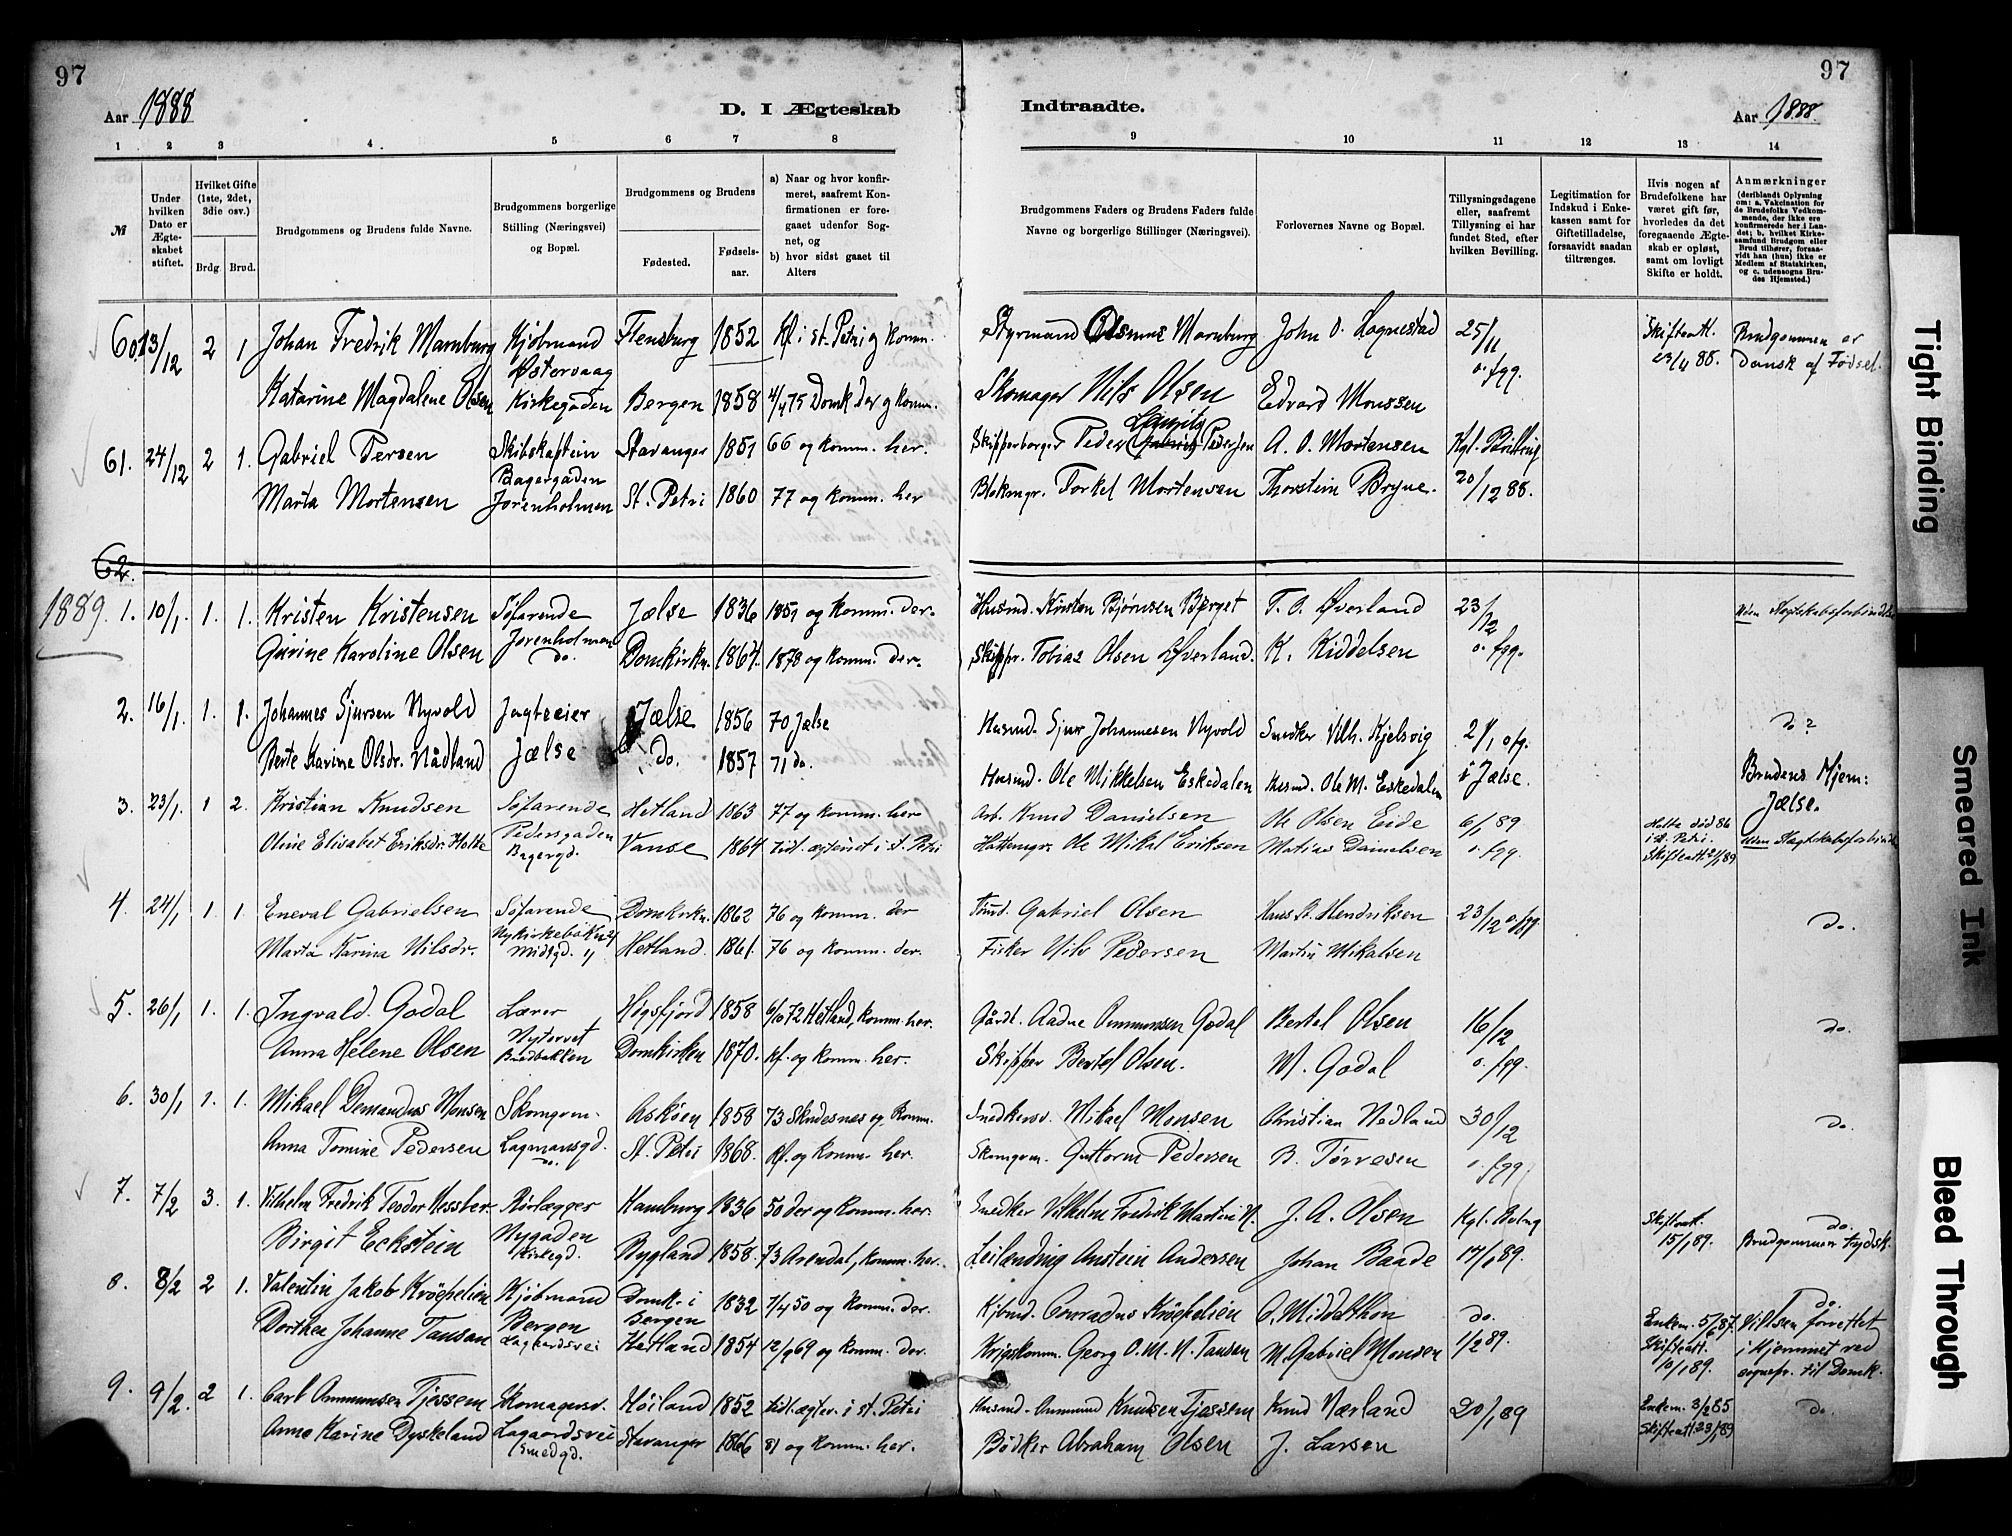 97
97
Aar 1888
D. I Ægteskab
Indtraadte.
Aar 1888.
1 2 3 4 5 6 7 8 9 10 11 12 13 14
№
Under hvilken Dato er Ægteskabet stiftet.
Hvilket Gifte (1ste, 2det, 3die osv.)
Brdg. Brud.
Brudgommens og Brudens fulde Navne.
Brudgommens borgerlige Stilling (Næringsvei) og Bopæl.
Brudgommens og Brudens
Fødested.
Fødselsaar.
a) Naar og hvor konfirmeret, saafremt Konfirmationen er foregaaet udenfor Sognet, og
b) hvor sidst gaaet til Alters
Brudgommens Faders og Brudens Faders fulde Navne og borgerlige Stillinger (Næringsvei).
Forlovernes Navne og Bopæl.
Tillysningsdagene eller, saafremt Tillysning ei har fundet Sted, efter hvilken Bevilling.
Legitimation for Indskud i Enkekassen samt for Giftetilladelse, forsaavidt saadan tiltrænges.
Hvis nogen af Brudefolkene har været gift før, hvorledes da det foregaaende Ægteskab er opløst, samt om lovligt Skifte er holdt.
Anmærkninger
(deriblandt Oplysning om: a. Vakcination for de Brudefolks Vedkommende, der ikke ere konfirmerede her i Landet; b. hvilket Kirkesamfund Brudgom eller Brud tilhører, forsaavidt han (hun) ikke er Medlem af Statskirken, og c. udensogns Brudes Hjemsted.)
60. 13/12 2 1 Johan Fredrik Marnburg Kjøbmand Flensburg 1852 Kf. i St. Petri og komm. Styrmand Asmus Marnburg John O. Lognestad 25/11 Skifteatt. Brudgommen er
Østervaag o. fgg. 29/11 88. Dansk af Fødsel.
Katarine Magdalene Olsen Kirkegaden Bergen 1858 4/4 75 Domk der og komm. Skomager Nils Olsen Edvard Monssen
61. 24/12 2 1. Gabriel Tersen Skibskaptein Stavanger 1851 66 og komm. her. Skipperborger Peder Gabriel Pedersen A. O. Mortensen Kgl. Bevilling
Bagergaden
Marta Mortensen Jorenholmen St. Petri 1860 77 og komm. her Blokmgr. Torkel Mortensen Thorstein Bryne. 20/12 88.
62.
1889. 1. 10/1. 1. 1. Kristen Kristensen Søfarende Jælse 1836 1851 og komm. der. Husmd. Kristen Bjørnsen Berget T. O. Øverland 23/12 Uden Slegtskabsforbindelse
Jorenholmen
Gurine Karoline Olsen do. Domkirkn. 1864. 1878 og komm. der. Skippr. Tobias Olsen Øverland. K. Kiddelsen o. fgg.
2. 16/1. 1. 1. Johannes Sjursen Nyvold Jagteeier Jælse 1856 70 Jælse Husmd. Sjur Johannesen Nyvold Snedker Vilh. Kjelsvig 2/1 o. fg. do?
Berte Karine Olsdr. Nådland Jælse do. 1857 71 do. Husmd. Ole Mikkelsen Eskedalen Husmd. Ole M. Eskedalen i Jælse. Brudens Hjem: Jælse.
3. 23/1. 1 2. Kristian Knudsen Søfarende Hetland 1863 77 og komm. her Arb. Knud Danielsen Ole Olsen Eide 6/1 89 Holta død 86
Pedersgaden i St. Petri.
Oline Elisabet Eriksdr. Holta Bagergd. Vanse 1864 tidl. ægteviet i St. Petri Hattemgr. Ole Mikal Eriksen Matias Danielsen o. fgg. Skifteatt. 2/1 89 Uden Slegtskabsforbindelse
4. 24/1 1. 1 Eneval Gabrielsen Søfarende Domkirkn. 1862 76 og komm. der Tømd. Gabriel Olsen Hans St. Hendriksen 23/12 o. fgg do.
Nykirkebakken 21
Marta Karina Nilsdr. Midtgd. 11 Hetland 1861. 76 og komm. der. Fisker Nils Pedersen Martin Mikalsen
5. 26/1 1. 1. Ingvald Godal Lærer Høgsfjord 1858 6/10 72 Hetland, komm. her. Gårdt. Aadne Ommundsen Godal Bertel Olsen 16/12 do.
Nytorvet
Anna Helene Olsen Bredbakken Domkirken 1870. Kf. og komm. her. Skipper Bertel Olsen. M. Godal o. fgg.
6. 30/1 1. 1. Mikael Demandus Monsen Skomgrm. Askøen 1858 73 Skudesnes og komm. Snedkersv. Mikael Monsen Christian Nedland 30/12 do.
Anna Tomine Pedersen Lagmansgd. do. St. Petri 1868. Kf. og komm. her. Skomgrm. Guttorm Pedersen B. Törresen o. fgg
7. 7/2 3. 1. Vilhelm Fredrik Teodor Hessber. Rørlægger Hamburg 1836 50 der og komm. her. Snedker Vilhelm Fredrik Martin H. J. A. Olsen Kgl. Bevlng Skifteatt. do.
Nygaden 15/1 89. Brudgommen tydsk.
Birgit Eckstein Kirkegd. Bygland 1858. 73 Arendal, komm. her. Leilending Anstein Andersen Johan Baade 17/1 89.
8. 8/2 2 1. Valentin Jakob Kröepelien Kjøbmand Domk. i 1832 7/4 50 og komm. der. Kjbmd. Conradus Kröepelien O. Middelthon do. do.
Bergen Bergen Enkem. 5/6 87. Vielsen forrettet
Dorthea Johanne Tausan Lagaardsvei Hetland 1854 12/9 69 og komm. der. Krigskomm. Georg O. M. N. Tausen M. Gabriel Monsen 1/2 89. Skifteatt. 10/1 89. i Hjemmet ved sognepr. til Domk.
9. 9/2. 2 1. Carl Ommundsen Tjessem Skomagersv. Høiland 1852 tidl. ægtev. i St. Petri Husmd. Ommund Knudsen Tjessem Knud Nærland 20/1 89 Enkem. 3/2 85 do
Lagaardsvei Skifteatt. 23/1 89
Anne Karine Dyskeland Smedgd. Stavanger 1866 81 og komm. her. Bødker Abraham Olsen J. Larsen
Tight Binding
Smeared Ink
Bleed Through